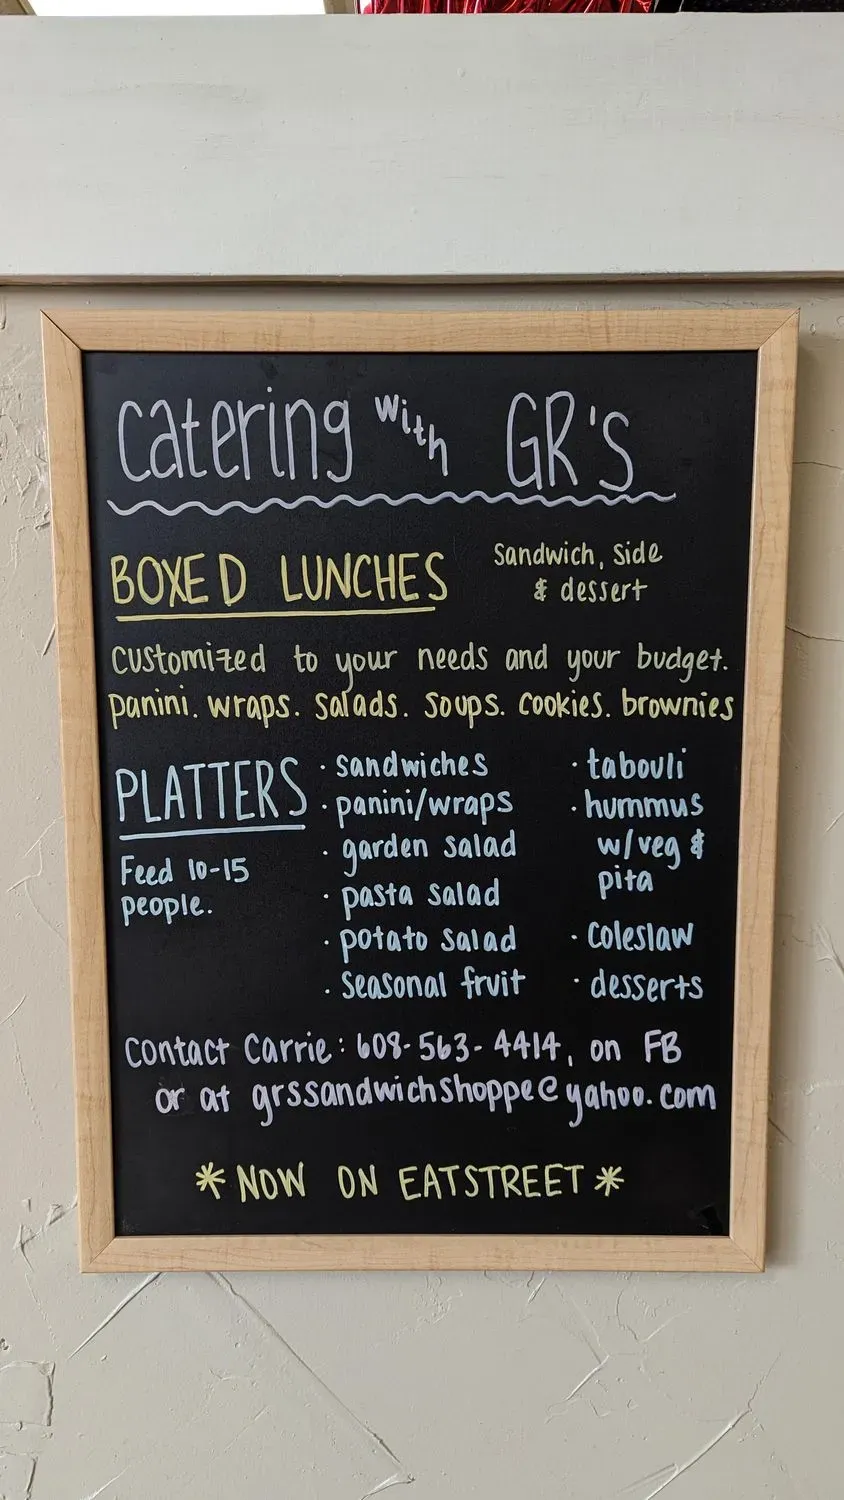 Catering with GR's
BOXED LUNCHES
Sandwich, side
& dessert
Customized to your needs and your budget.
Panini. wraps. Salads. Soups. Cookies. brownies
PLATTERS
Feed 10-15
people.
· sandwiches
· panini/wraps
· garden salad
· pasta salad
· potato salad
· Seasonal fruit
· tabouli
· hummus
w/veg &
pita
· Coleslaw
· desserts
Contact Carrie: 608-563-4414, on FB
or at grssandwichshoppe@yahoo.com
* NOW ON EATSTREET *